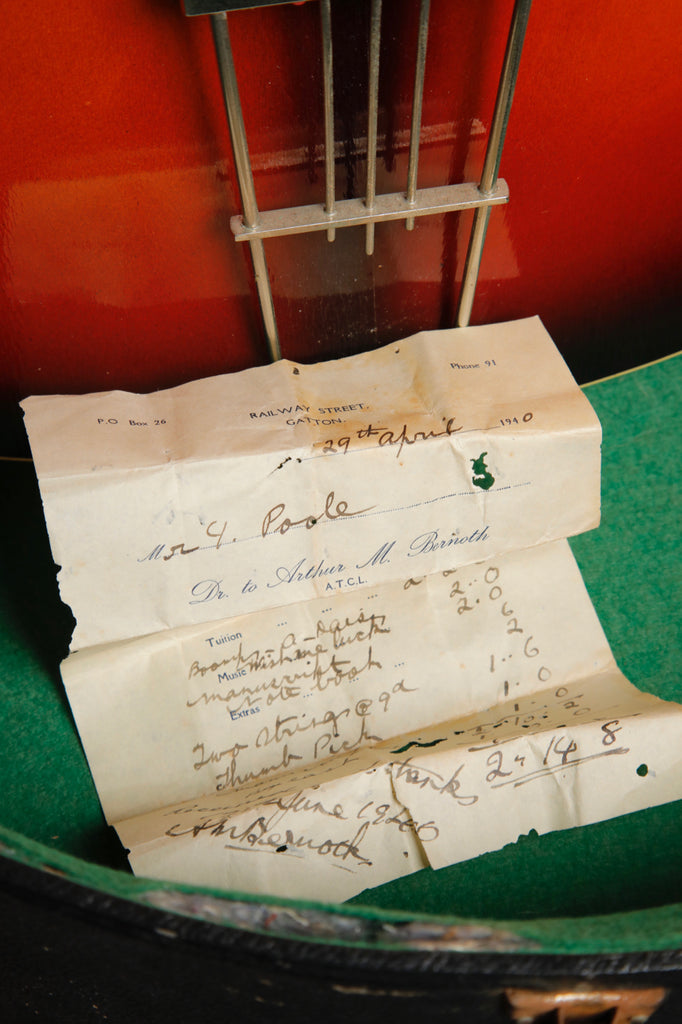 P.O Box 26
Phone 91
RAILWAY STREET.
GATTON.
29th April 1940
Mr Y. Poole
Dr. to Arthur M. Bernoth
A.T.C.L.
Tuition ... ...
Boomps-A-Daisy 2..0
Music Wish me luck 2.0
Manuscript 6
Note book 2
Extras ... ...
Two Strings @ 9d 1..6
Thumb Pick 1.0
thanks 2 " 14 8
June 1940
AMBernoth